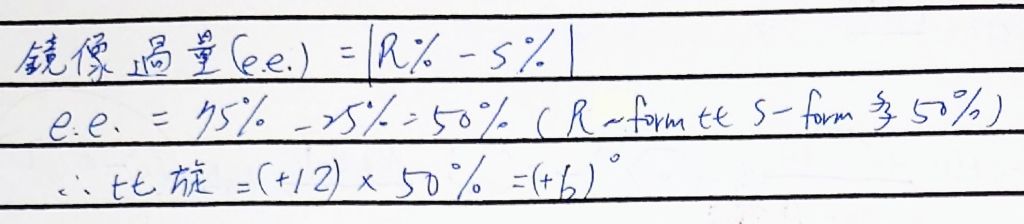 鏡像過量(e.e.) = |R% - S%|
e.e. = 75% - 25% = 50% (R-form 比 S-form 多 50%)
∴ 比旋 = (+12) × 50% = (+6)°